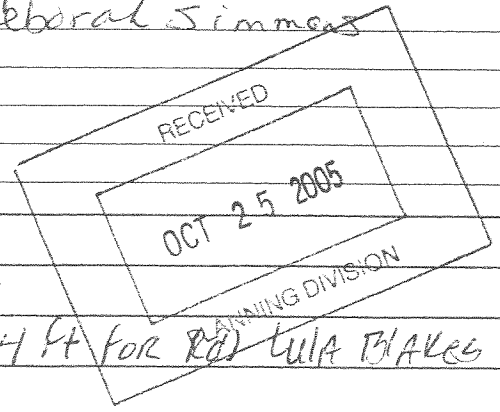 eborah Simmons
RECEIVED
OCT 25 2005
ANNING DIVISION
4 ft for Rd) Lula Blakes